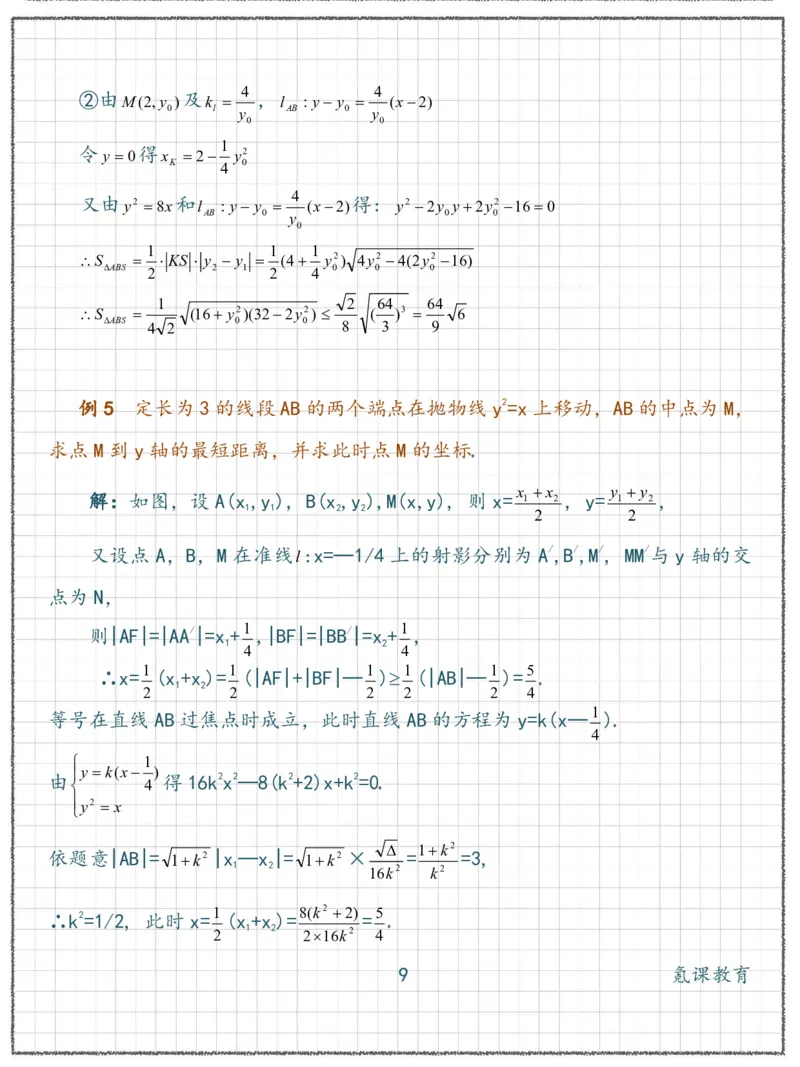 ②由 M(2, y₀) 及 k_l = 4/y₀ ，l_AB : y − y₀ = 4/y₀ (x − 2)
令 y = 0 得 x_K = 2 − 1/4 y₀²
又由 y² = 8x 和 l_AB : y − y₀ = 4/y₀ (x − 2) 得： y² − 2y₀y + 2y₀² − 16 = 0
∴S_△ABS = 1/2 · |KS| · |y₂ − y₁| = 1/2 (4 + 1/4 y₀²) √(4y₀² − 4(2y₀² − 16))
∴S_△ABS = 1/(4√2) √((16 + y₀²)(32 − 2y₀²)) ≤ √2/8 √((64/3)³) = 64/9 √6
例 5 定长为 3 的线段 AB 的两个端点在抛物线 y²=x 上移动，AB 的中点为 M，
求点 M 到 y 轴的最短距离，并求此时点 M 的坐标.
解：如图，设 A(x₁,y₁)，B(x₂,y₂),M(x,y)，则 x=(x₁+x₂)/2，y=(y₁+y₂)/2，
又设点 A，B，M 在准线 l:x=—1/4 上的射影分别为 A′,B′,M′，MM′与 y 轴的交
点为 N，
则|AF|=|AA′|=x₁+1/4,|BF|=|BB′|=x₂+1/4，
∴x=1/2(x₁+x₂)=1/2(|AF|+|BF|—1/2)≥1/2(|AB|—1/2)=5/4.
等号在直线 AB 过焦点时成立，此时直线 AB 的方程为 y=k(x—1/4).
由{y = k(x − 1/4) y² = x 得 16k²x²—8(k²+2)x+k²=0.
依题意|AB|=√(1+k²)|x₁—x₂|=√(1+k²)×√Δ/16k²=(1+k²)/k²=3,
∴k²=1/2，此时 x=1/2(x₁+x₂)=8(k²+2)/(2×16k²)=5/4.
9 氪课教育